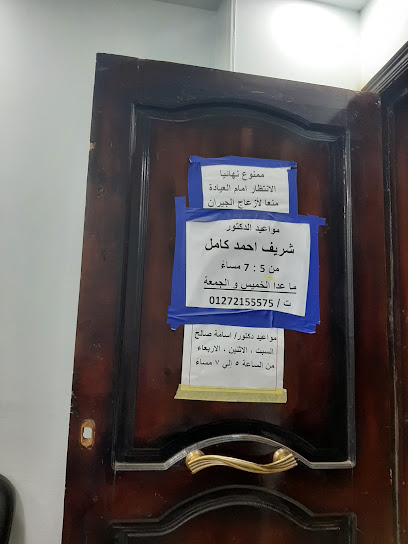 ممنوع نهائيا
الانتظار امام العيادة
منعا لأزعاج الجيران
مواعيد الدكتور
شريف احمد كامل
من 5 : 7 مساء
ما عدا الخميس و الجمعة
ت / 01272155575
مواعيد دكتور/ اسامة صالح
السبت ، الاثنين ، الاربعاء
من الساعة ٥ الي ٧ مساء